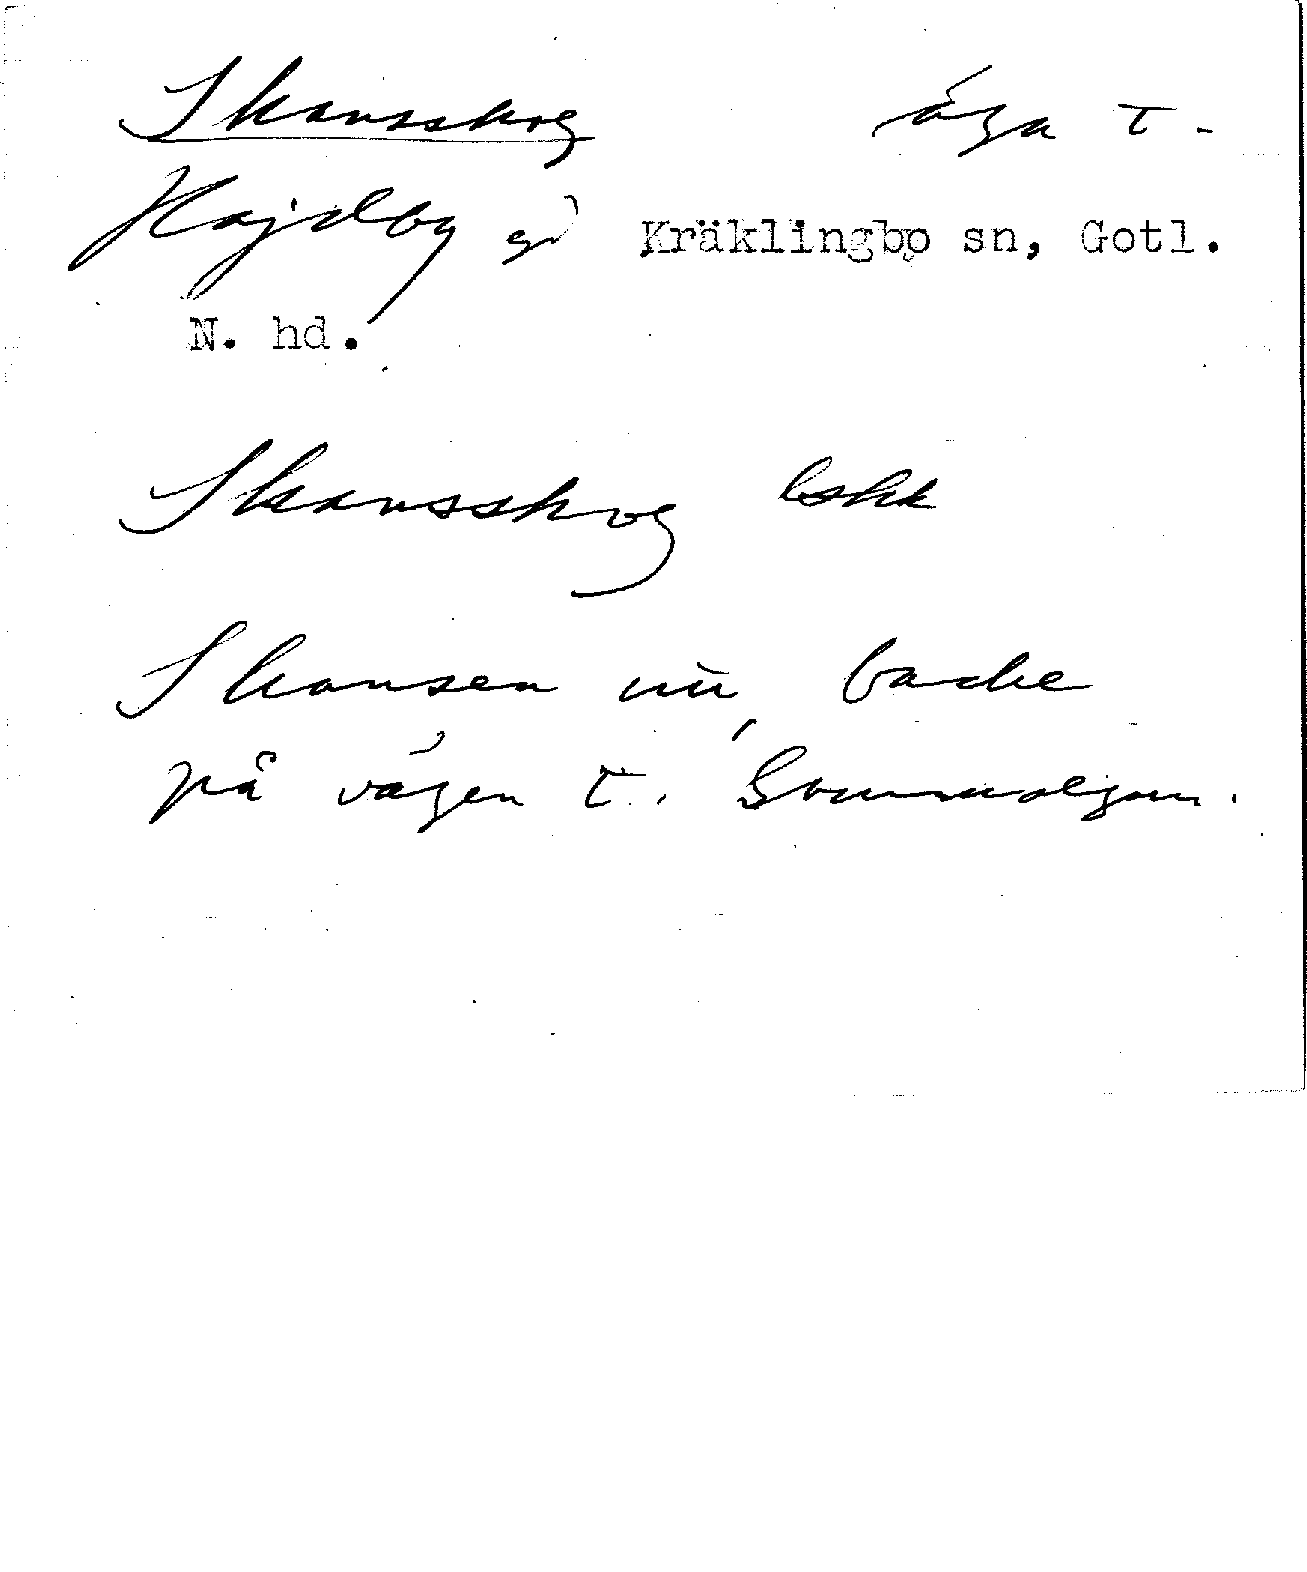 Skansskog äga t.
Hajdby gd Kräklingbo sn, Gotl.
N. hd.
Skansskog lskk
Skansen nu, backe
på vägen t.